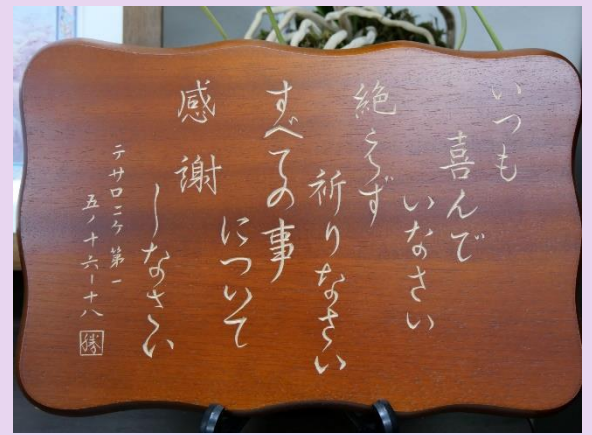 いつも
喜んで
いなさい
絶えず
祈りなさい
すべての事
について
感謝
しなさい
テサロニケ第一
五ノ十六ー十八
勝